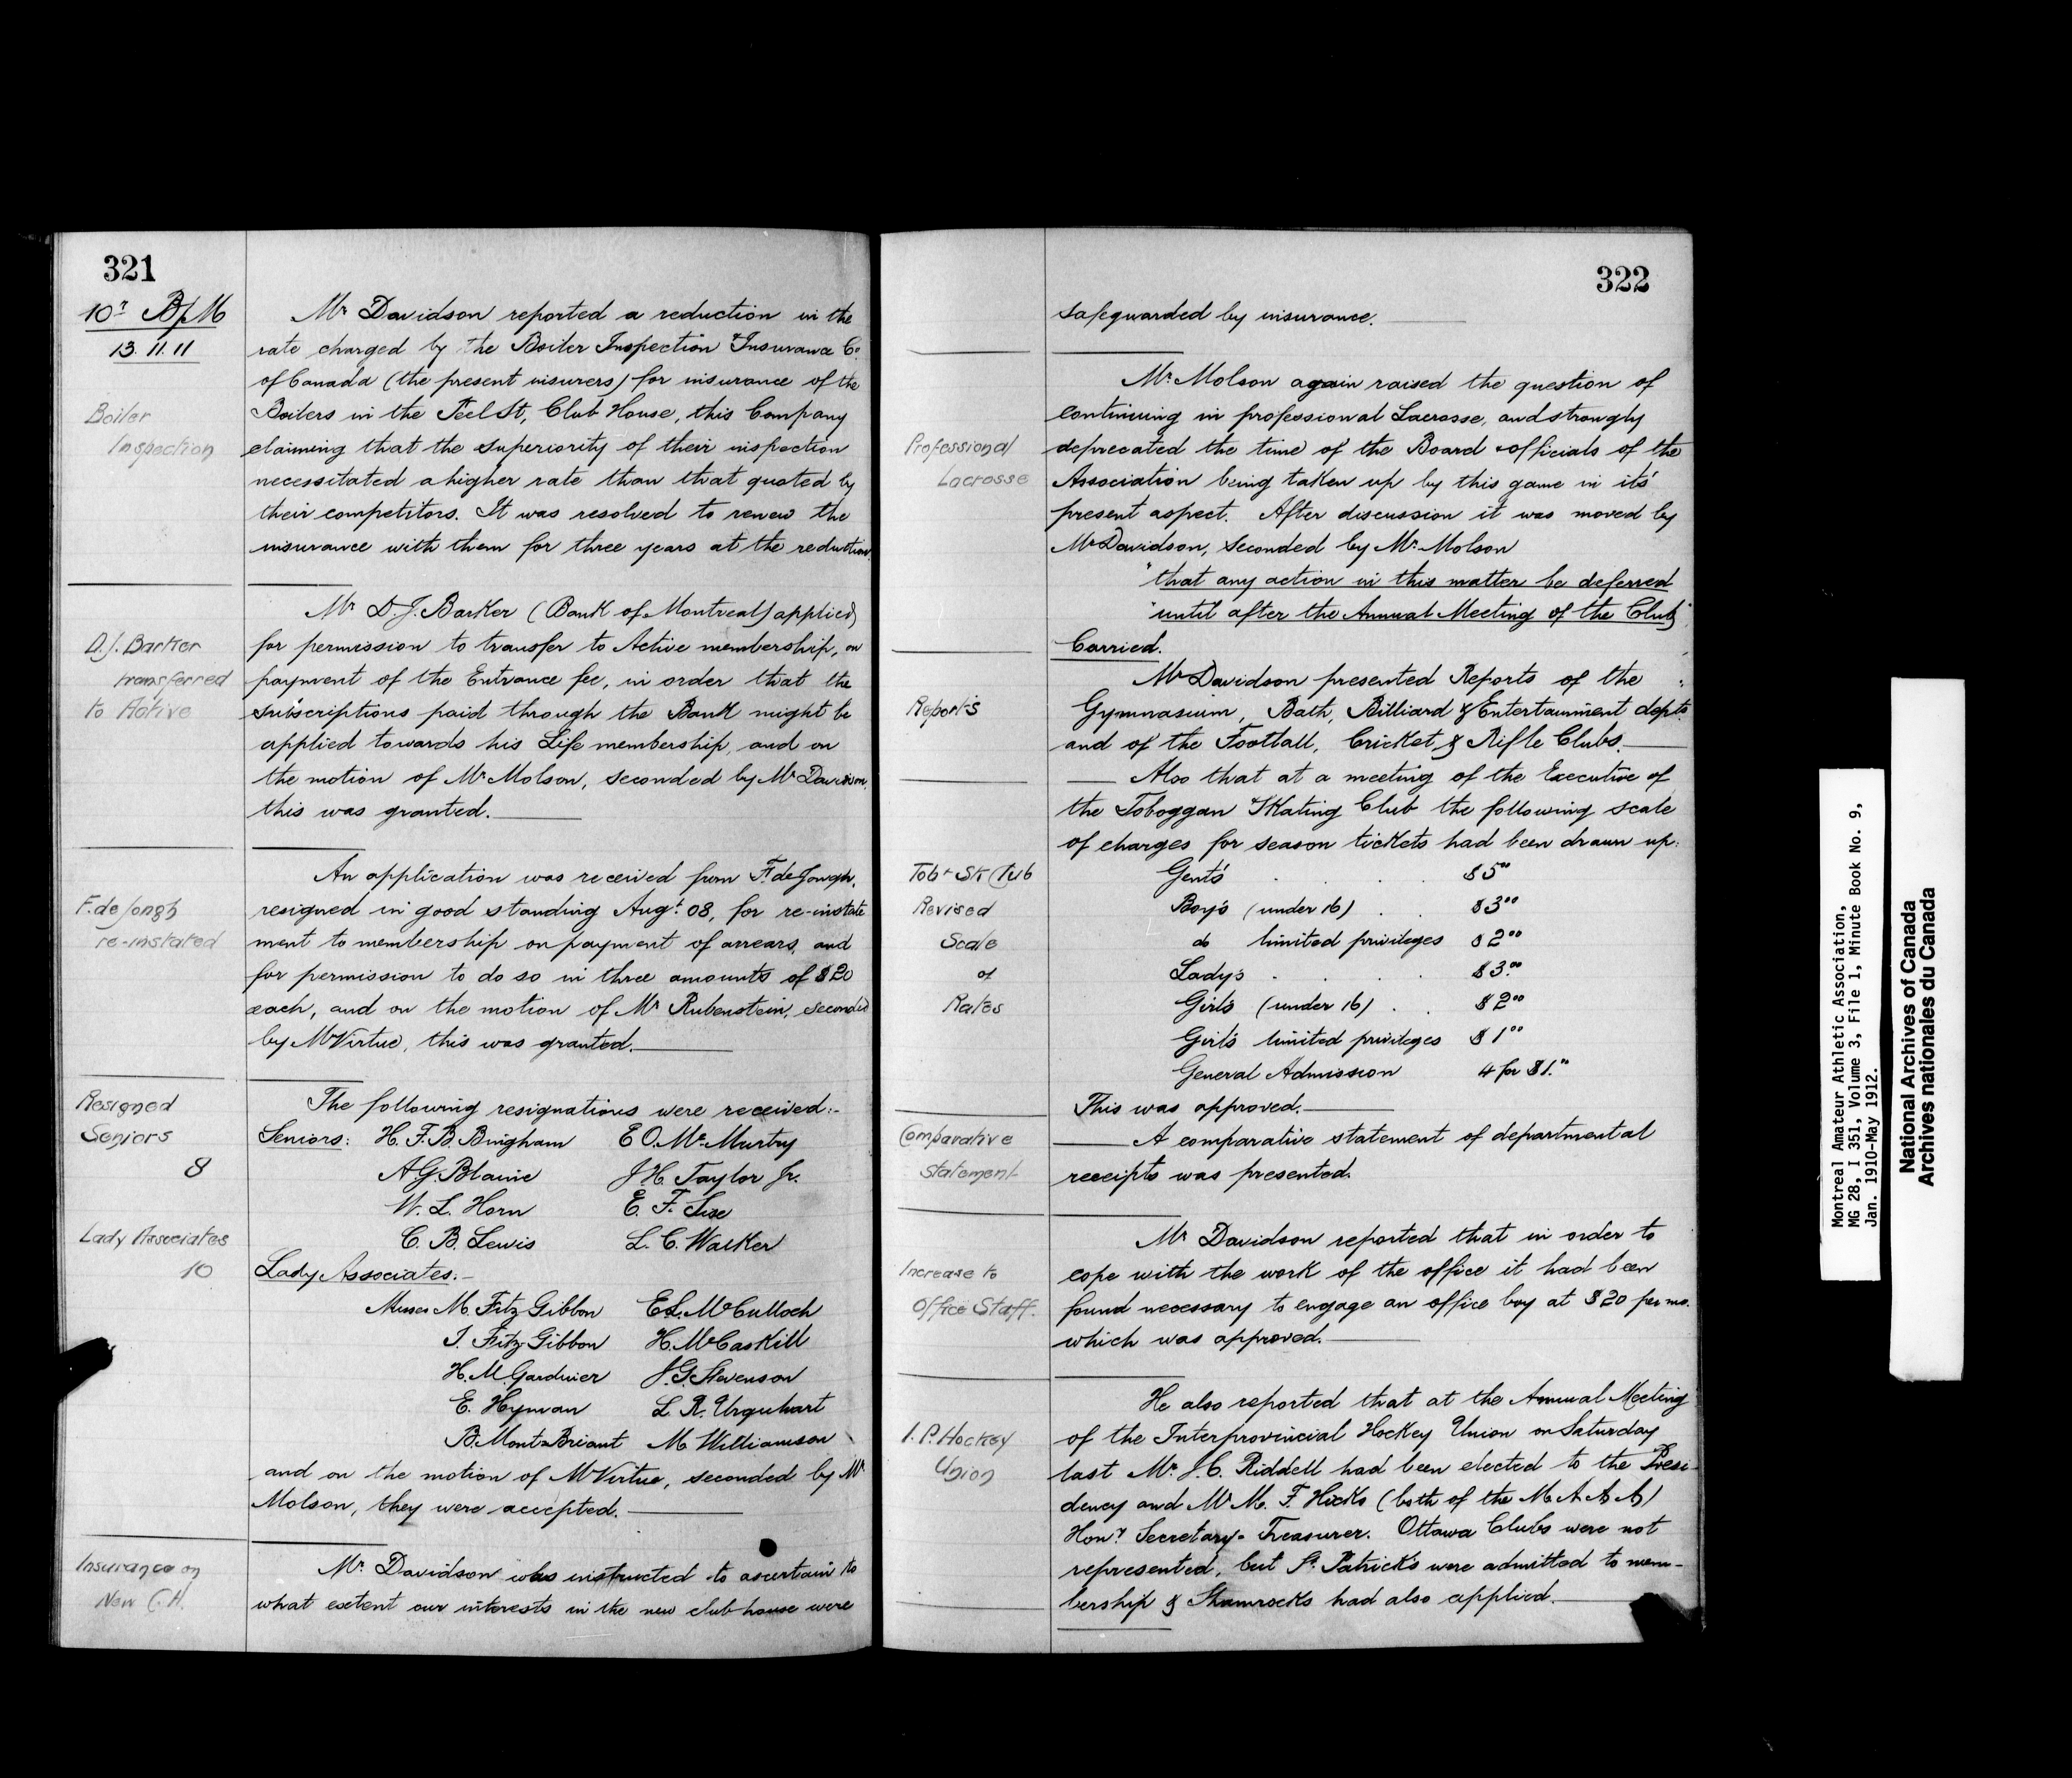 321
10th B/M
13.11.11
Mr Davidson reported a reduction in the
rate charged by the Boiler Inspection & Insurance Co.
of Canada (the present insurers) for insurance of the
Boiler
Boilers in the Peel St, Club House, this Company
Inspection
claiming that the superiority of their inspection
necessitated a higher rate than that quoted by
their competitors. It was resolved to renew the
insurance with them for three years at the reduction.
Mr D.J. Barker (Bank of Montreal) applied
D.J. Barker
for permission to transfer to Active membership, on
transferred
payment of the Entrance fee, in order that the
to Active
subscriptions paid through the Bank might be
applied towards his Life membership, and on
the motion of Mr Molson, seconded by Mr Davidson,
this was granted.
An application was received from F. de Jongh,
F. de Jongh
resigned in good standing Augt. 08, for re-instate
re-instated
ment to membership on payment of arrears, and
for permission to do so in three amounts of $20
each, and on the motion of Mr Rubenstein, seconded
by Mr Virtue, this was granted.
Resigned
The following resignations were received:-
Seniors
Seniors: H. F. B. Bingham E O. McMurtry
8
A.G. Blaine J.H. Taylor Jr.
W. L. Horn E. F. Sise
Lady Associates
C. B. Lewis L. C. Walker
10
Lady Associates:-
Misses M. Fitz Gibbon E.L. McCulloch
I. Fitz Gibbon H. McCaskill
H. M. Gardiner J.G. Stevenson
E. Hyman L. R. Urquhart
B. MontBriant M. Williamson
and on the motion of Mr Virtue, seconded by Mr
Molson, they were accepted.
Insurance on
Mr. Davidson was instructed to ascertain to
New C.H.
what extent our interests in the new club-house were
322
safeguarded by insurance.
Mr. Molson again raised the question of
continuing in professional Lacrosse, and strongly
Professional
deprecated the time of the Board & officials of the
Lacrosse
Association being taken up by this game in its'
present aspect. After discussion it was moved by
Mr Davidson, seconded by Mr. Molson
"that any action in this matter be deferred
"until after the Annual Meeting of the Club"
Carried.
Mr Davidson presented Reports of the
Reports
Gymnasium, Bath, Billiard & Entertainment depts.
and of the Football, Cricket, & Rifle Clubs.
Also that at a meeting of the Executive of
the Toboggan & Skating Club the following scale
of charges for season tickets had been drawn up:
Tobn & Sk Club
Gent's . . . $5.00
Revised
Boy's (under 16) . . $3.00
Scale
do limited privileges $2.00
of
Lady's . . . $3.00
Rates
Girl's (under 16) . . $2.00
Girl's limited privileges $1.00
General Admission 4 for $1.00
This was approved.
Comparative
A comparative statement of departmental
statement
receipts was presented.
Mr Davidson reported that in order to
Increase to
cope with the work of the office it had been
Office Staff.
found necessary to engage an office boy at $20 per mo.
which was approved.
He also reported that at the Annual Meeting
I. P. Hockey
of the Interprovincial Hockey Union on Saturday
Union
last Mr. J.C. Riddell had been elected to the Presi-
dency and Mr M. F. Hicks (both of the M A A A)
Hony Secretary-Treasurer. Ottawa Clubs were not
represented, but St. Patrick's were admitted to mem-
bership & Shamrocks had also applied.
Montreal Amateur Athletic Association,
MG 28, I 351, Volume 3, File 1, Minute Book No. 9,
Jan. 1910-May 1912.
National Archives of Canada
Archives nationales du Canada